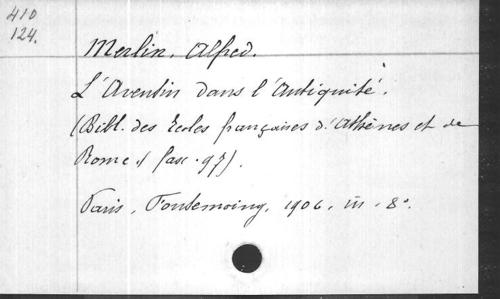 410
124.
Merlin, Alfred.
L'Aventin dans l'Antiquité.
(Bibl. des Ecoles françaises d'Athènes et de
Rome. / fasc. 97).
Paris, Fontemoing, 1906, in-8°.